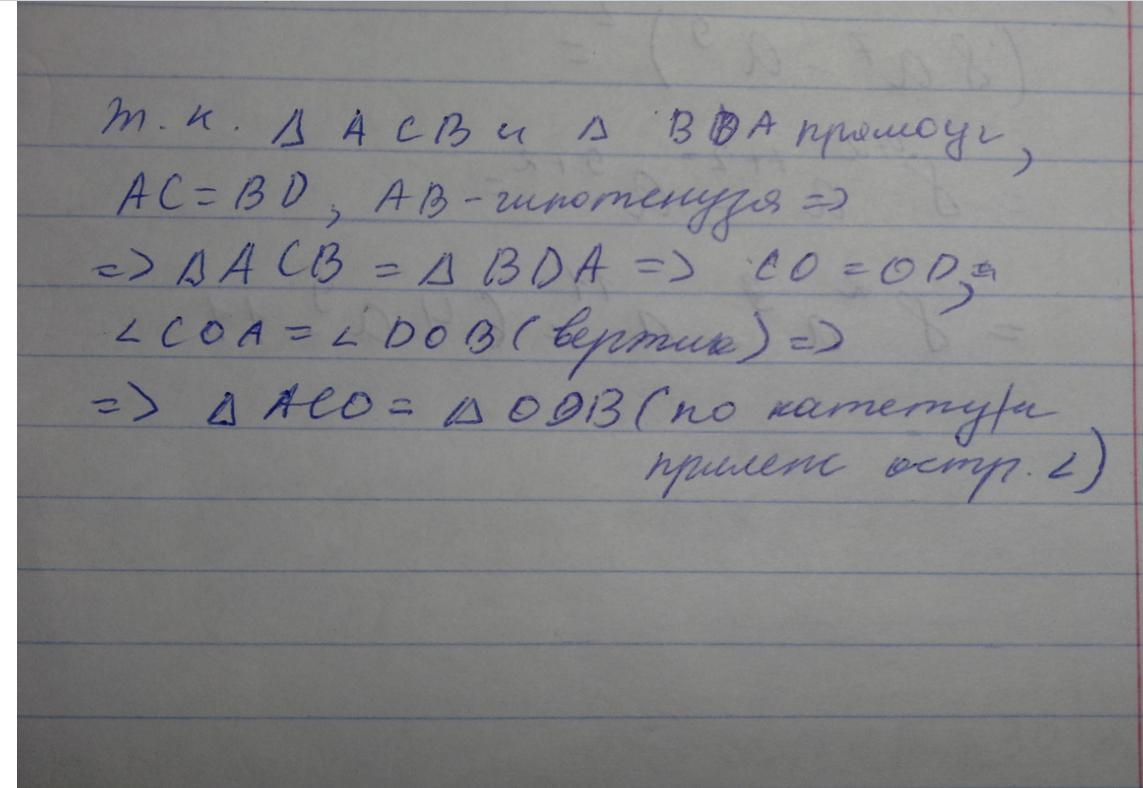 т.к. Δ ACB и Δ BDA прямоуг,
AC = BD, AB - гипотенуза =>
=> Δ ACB = Δ BDA => CO = OD,
∠COA = ∠DOB (вертик) =>
=> Δ ACO = Δ ODB (по катету и
прилеж остр. ∠)